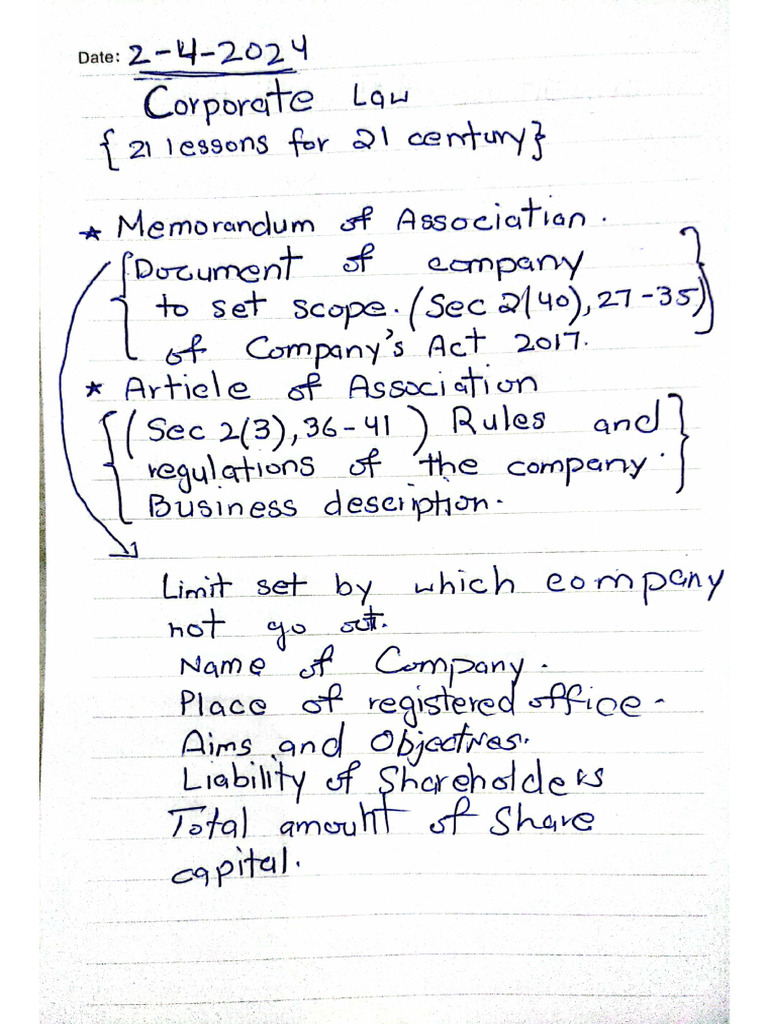 Date: 2-4-2024
Corporate Law
{21 lessons for 21 century}
* Memorandum of Association.
{Document of company
to set scope. (Sec 2(40), 27-35)
of Company's Act 2017.}
* Article of Association
{(Sec 2(3), 36-41) Rules and
regulations of the company.}
Business description.
Limit set by which company
not go out.
Name of Company.
Place of registered office.
Aims and Objectives.
Liability of Shareholders
Total amount of Share
capital.